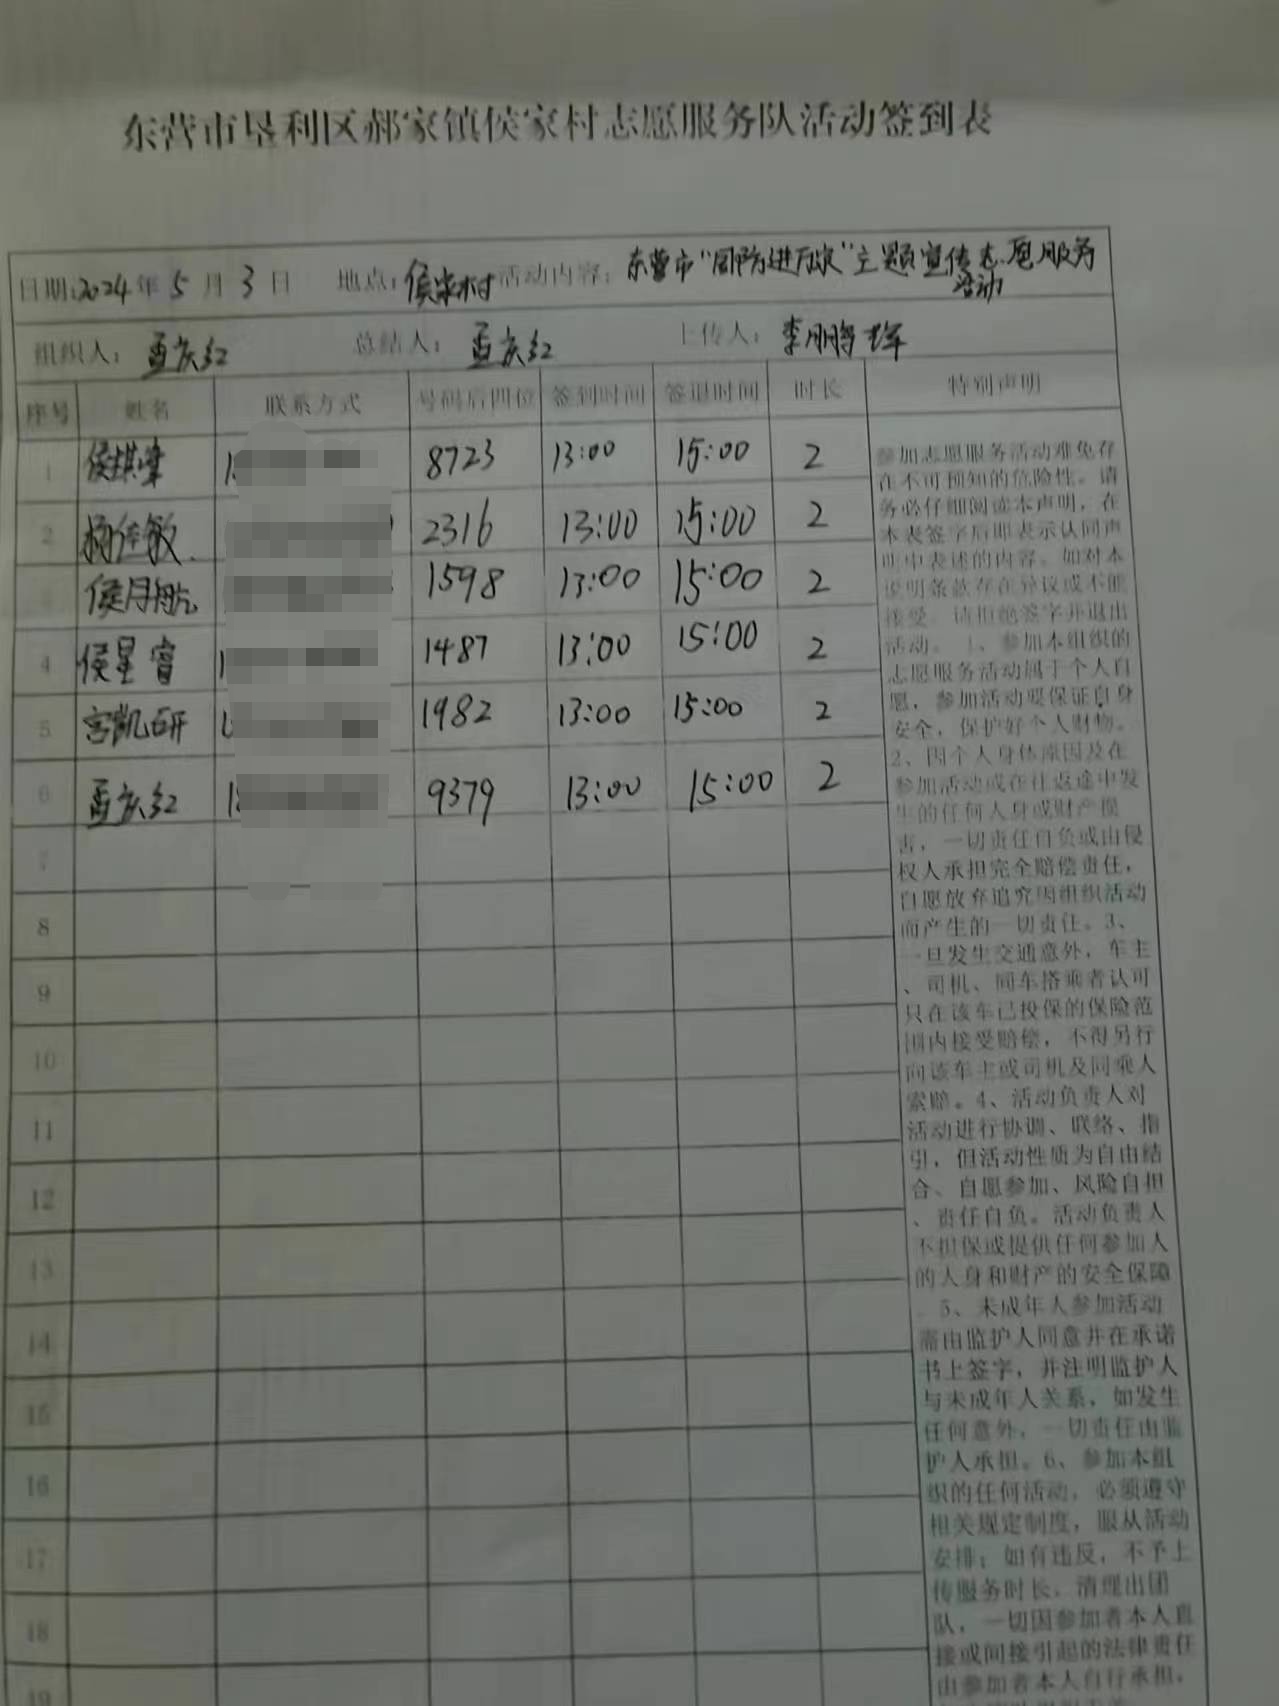 东营市垦利区郝家镇侯家村志愿服务队活动签到表
日期:2024年5月3日 地点:侯家村 活动内容:东营市“国防进万家”主题宣传志愿服务
活动
组织人:孟庆红 总结人:孟庆红 上传人:李鹏
序号 姓名 联系方式 号码后四位 签到时间 签退时间 时长 特别声明
1 侯 1 8723 13:00 15:00 2
2 杨佳敏 2316 13:00 15:00 2
侯月航 1598 13:00 15:00 2
4 侯星睿 1 1487 13:00 15:00 2
5 宫凯研 1982 13:00 15:00 2
6 孟庆红 1 9379 13:00 15:00 2
7
8
9
10
11
12
13
14
15
16
17
18
19
参加志愿服务活动难免存
在不可预知的危险性。请
务必仔细阅读本声明，在
本表签字后即表示认同声
明中表述的内容。如对本
说明条款存在异议或不能
接受，请拒绝签字并退出
活动。1、参加本组织的
志愿服务活动属于个人自
愿，参加活动要保证自身
安全，保护好个人财物。
2、因个人身体原因及在
参加活动或在往返途中发
生的任何人身或财产损
害，一切责任自负或由侵
权人承担完全赔偿责任，
自愿放弃追究因组织活动
而产生的一切责任。3、
一旦发生交通意外，车主
、司机、同车搭乘者认可
只在该车已投保的保险范
围内接受赔偿，不得另行
向该车主或司机及同乘人
索赔。4、活动负责人对
活动进行协调、联络、指
引，但活动性质为自由结
合、自愿参加、风险自担
、责任自负。活动负责人
不担保或提供任何参加人
的人身和财产的安全保障
。5、未成年人参加活动
需由监护人同意并在承诺
书上签字，并注明监护人
与未成年人关系，如发生
任何意外，一切责任由监
护人承担。6、参加本组
织的任何活动，必须遵守
相关规定制度，服从活动
安排；如有违反，不予上
传服务时长，清理出团
队，一切因参加者本人直
接或间接引起的法律责任
由参加者本人自行承担，